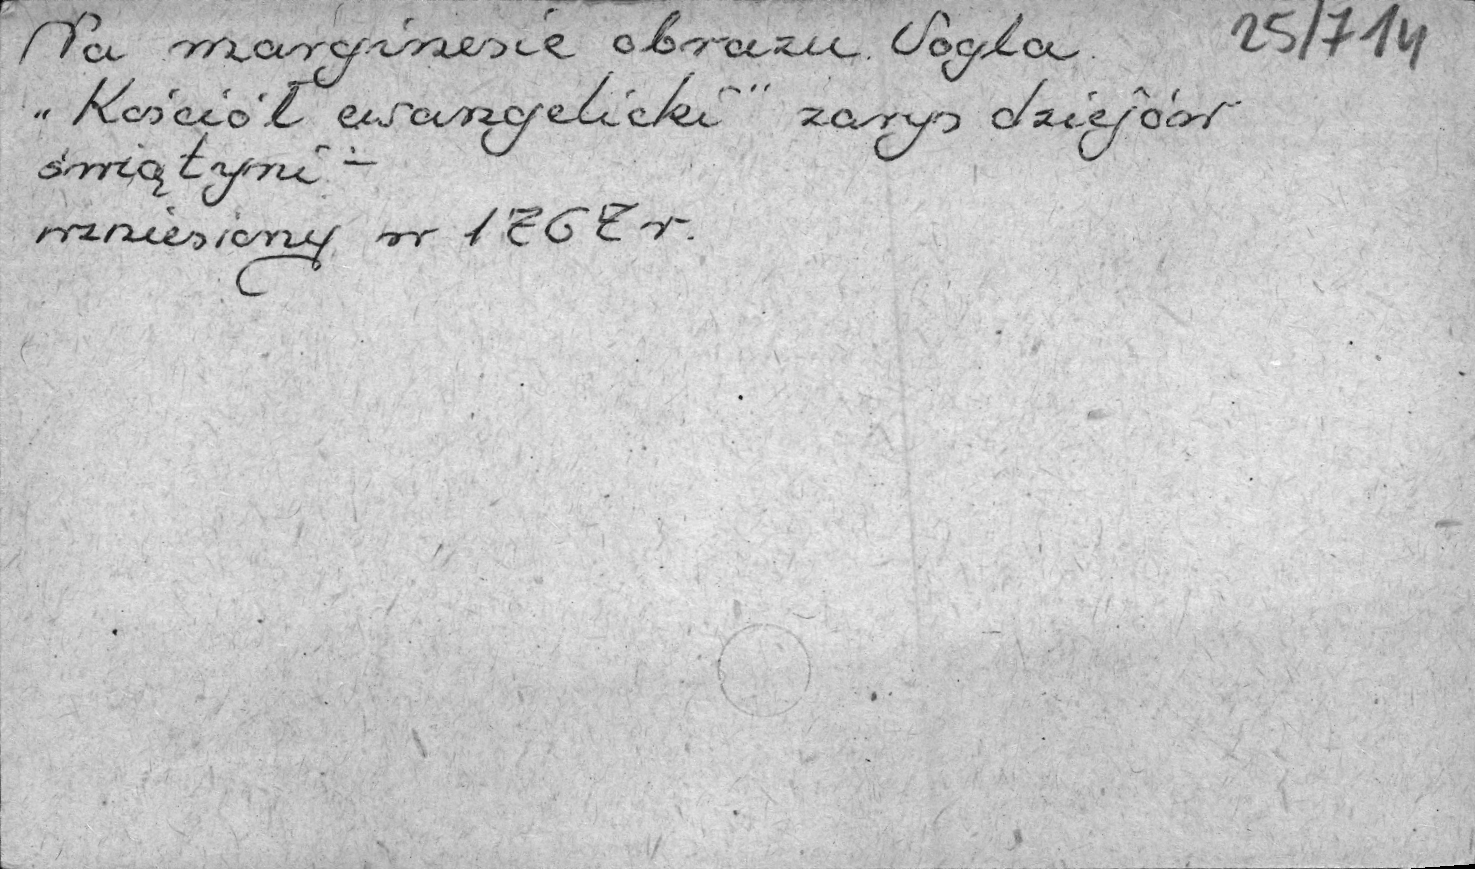 Na marginesie obrazu Vogla 25/714
„Kościół ewangelicki" zarys dziejów
świątyni –
wzniesiony w 1767 r.